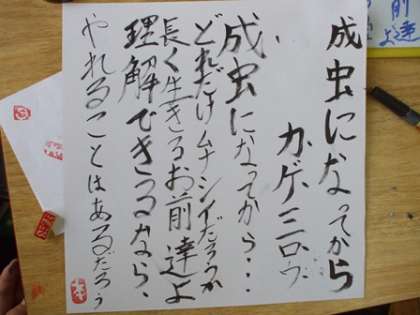 成虫になってから
カゲ三ロウ
成虫になってから・・・
どれだけムナシイだろうか
長く生きるお前達よ
理解できうるなら、
やれることはあるだろう
前達よ